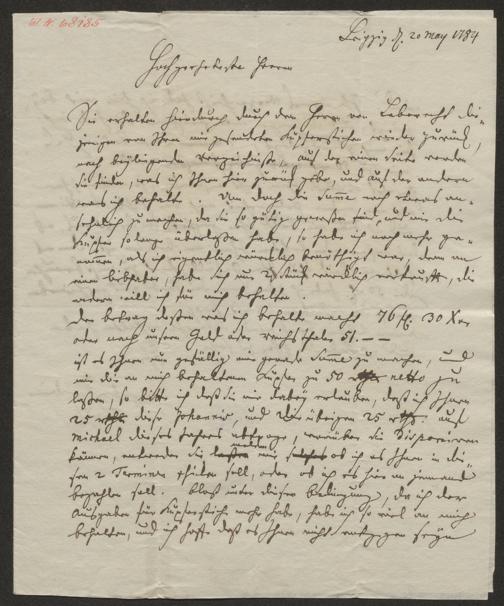 W. N. 68985
Leipzig d. 20 May 1784
Hochgeehrteste Herren
Sie erhalten hierdurch durch den Herrn von Leberecht die¬
jenigen von Ihnen mir gesendeten Kupferstiche wieder zurück,
nach beyliegenden Verzeichniße, auf der einen Seite werden
Sie finden, was ich Ihnen hier zurück gebe, und auf der andern
was ich behalte. Um doch die Summe noch etwas an¬
sehnlich zu machen, da Sie so gütig gewesen sind, mir die
Kupfer so lange überlaßen haben, so habe ich noch mehr ge¬
nommen, als ich eigentlich benöthiget war, denn an
einen Liebhaber habe ich nur 2 Stück verkauft, die
andern will ich für mich behalten.
Der Betrag deßen was ich behalte macht 76 fl. 30 Xer
oder nach unsern Geld oder Reichsthaler 51. — —
ist es Ihnen nun gefällig mir gerade Summe zu machen, und
mir die an mich behaltenen Kupfer zu 50 netto zu
laßen, so bitte ich daß Sie mir dabey erlauben, daß ich Ihnen
25 rthl. diese Johannis, und die übrigen 25 rthl. auf
Michael dieses Jahres abtrage, worüber Sie disponieren
können, entweder Sie melden mir ob ich es Ihnen in die¬
sen 2 Terminen schicken soll, oder ob ich es hier an jemand
bezahlen soll. Bloß unter dieser Bedingung, da ich der
Ausgaben für Kupferstiche mehr habe, habe ich so viel an mich
behalten, und ich hoffe daß es Ihnen nicht entgegen seyn